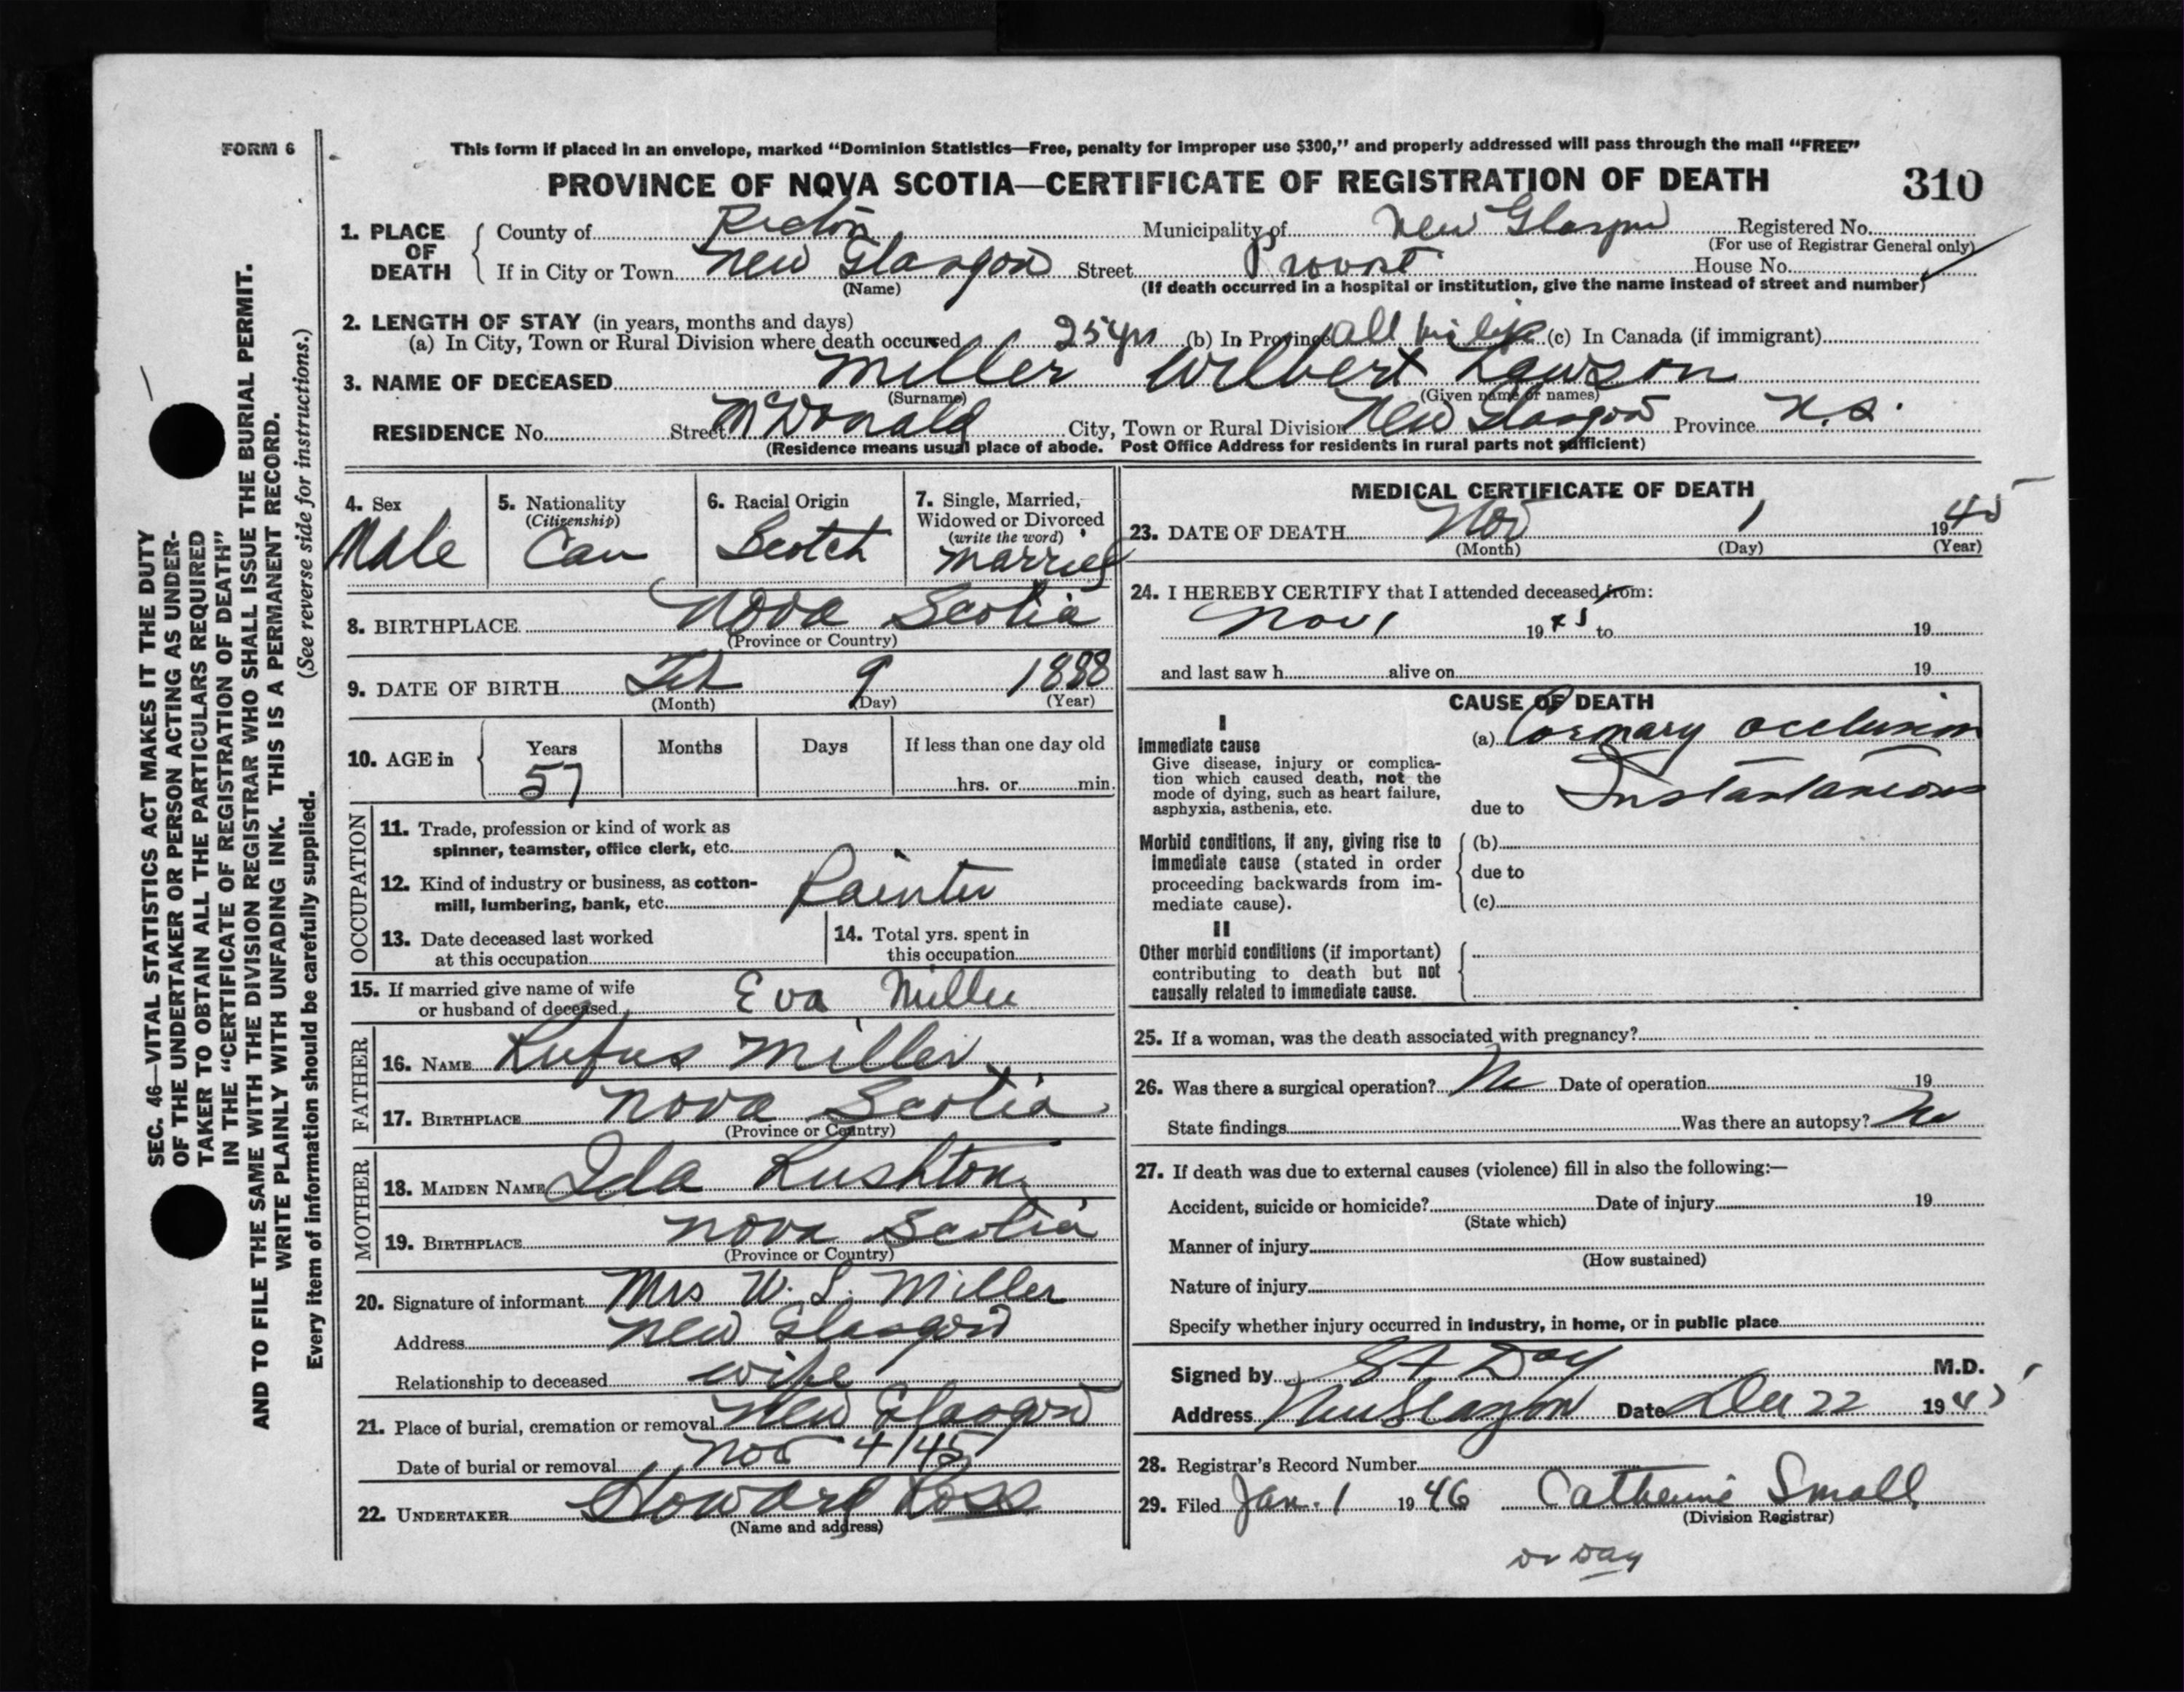 FORM 6
This form if placed in an envelope, marked “Dominion Statistics—Free, penalty for improper use $300,” and properly addressed will pass through the mail “FREE”
PROVINCE OF NOVA SCOTIA—CERTIFICATE OF REGISTRATION OF DEATH
310
1. PLACE OF DEATH
County of Pictou Municipality of New Glasgow Registered No.
(For use of Registrar General only)
If in City or Town New Glasgow Street Provost House No.
(Name) (If death occurred in a hospital or institution, give the name instead of street and number)
2. LENGTH OF STAY (in years, months and days)
(a) In City, Town or Rural Division where death occurred 25 yrs (b) In Province all his life (c) In Canada (if immigrant)
3. NAME OF DECEASED Miller Wilbert Lawson
(Surname) (Given name or names)
RESIDENCE No. Street McDonald City, Town or Rural Division New Glasgow Province N.S.
(Residence means usual place of abode. Post Office Address for residents in rural parts not sufficient)
4. Sex
Male
5. Nationality
(Citizenship)
Can
6. Racial Origin
Scotch
7. Single, Married,
Widowed or Divorced
(write the word)
Married
8. BIRTHPLACE Nova Scotia
(Province or Country)
9. DATE OF BIRTH Feb 9 1888
(Month) (Day) (Year)
10. AGE in
Years Months Days If less than one day old
57 hrs. or min.
OCCUPATION
11. Trade, profession or kind of work as
spinner, teamster, office clerk, etc.
12. Kind of industry or business, as cotton-
mill, lumbering, bank, etc. Painter
13. Date deceased last worked
at this occupation
14. Total yrs. spent in
this occupation
15. If married give name of wife
or husband of deceased Eva Miller
FATHER
16. NAME Rufus Miller
17. BIRTHPLACE Nova Scotia
(Province or Country)
MOTHER
18. MAIDEN NAME Ida Rushton
19. BIRTHPLACE Nova Scotia
(Province or Country)
20. Signature of informant Mrs W. L. Miller
Address New Glasgow
Relationship to deceased wife
21. Place of burial, cremation or removal New Glasgow
Date of burial or removal Nov 4/45
22. UNDERTAKER Howard Ross
(Name and address)
MEDICAL CERTIFICATE OF DEATH
23. DATE OF DEATH Nov 1 1945
(Month) (Day) (Year)
24. I HEREBY CERTIFY that I attended deceased from:
Nov 1 1945 to 19
and last saw h alive on 19
CAUSE OF DEATH
I
Immediate cause
Give disease, injury or complica-
tion which caused death, not the
mode of dying, such as heart failure,
asphyxia, asthenia, etc.
(a) Coronary occlusion
due to Instantaneous
Morbid conditions, if any, giving rise to
immediate cause (stated in order
proceeding backwards from im-
mediate cause).
(b)
due to
(c)
II
Other morbid conditions (if important)
contributing to death but not
causally related to immediate cause.
25. If a woman, was the death associated with pregnancy?
26. Was there a surgical operation? No Date of operation 19
State findings Was there an autopsy? No
27. If death was due to external causes (violence) fill in also the following:—
Accident, suicide or homicide? Date of injury 19
(State which)
Manner of injury
(How sustained)
Nature of injury
Specify whether injury occurred in industry, in home, or in public place
Signed by Day M.D.
Address New Glasgow Date Dec 22 1945
28. Registrar's Record Number
29. Filed Jan. 1 1946 Catherine Small
(Division Registrar)
Dr Day
SEC. 46—VITAL STATISTICS ACT MAKES IT THE DUTY
OF THE UNDERTAKER OR PERSON ACTING AS UNDER-
TAKER TO OBTAIN ALL THE PARTICULARS REQUIRED
IN THE “CERTIFICATE OF REGISTRATION OF DEATH”
AND TO FILE THE SAME WITH THE DIVISION REGISTRAR WHO SHALL ISSUE THE BURIAL PERMIT.
WRITE PLAINLY WITH UNFADING INK. THIS IS A PERMANENT RECORD.
Every item of information should be carefully supplied. (See reverse side for instructions.)